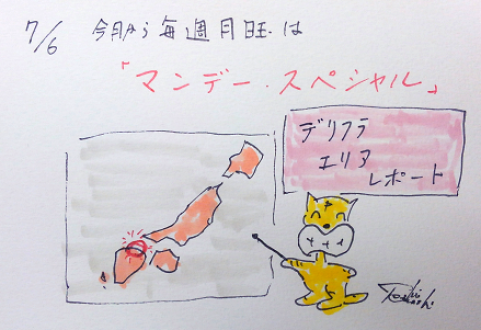 7/6 今日から毎週月曜は
「マンデー・スペシャル」
デリフラ
エリア
レポート